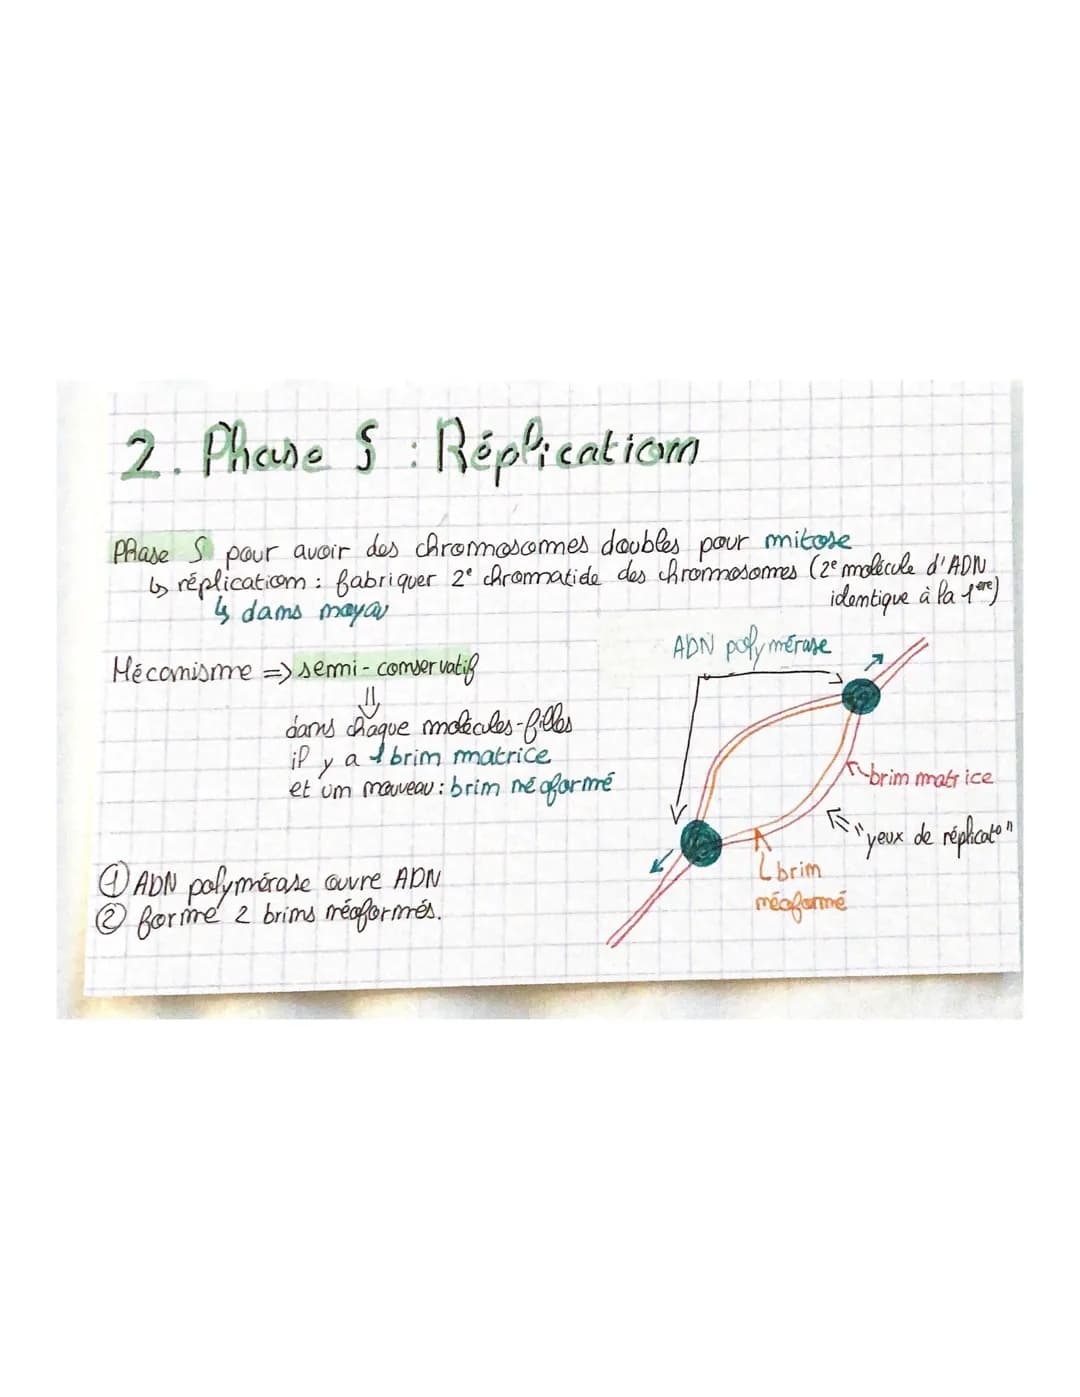 2. Phase S : Réplication
Phase S pour avoir des chromosomes doubles pour mitose
↳ réplication : fabriquer 2e chromatide des chromosomes (2e molécule d'ADN
identique à la 1ère)
↳ dans noyau
Mécanisme => semi-conservatif
⇓
dans chaque molécules-filles
il y a 1 brin matrice
et un nouveau : brin néoformé
① ADN polymérase ouvre ADN
② forme 2 brins néoformés.
ADN polymérase
brin matrice
"yeux de réplicato"
brin
néoformé